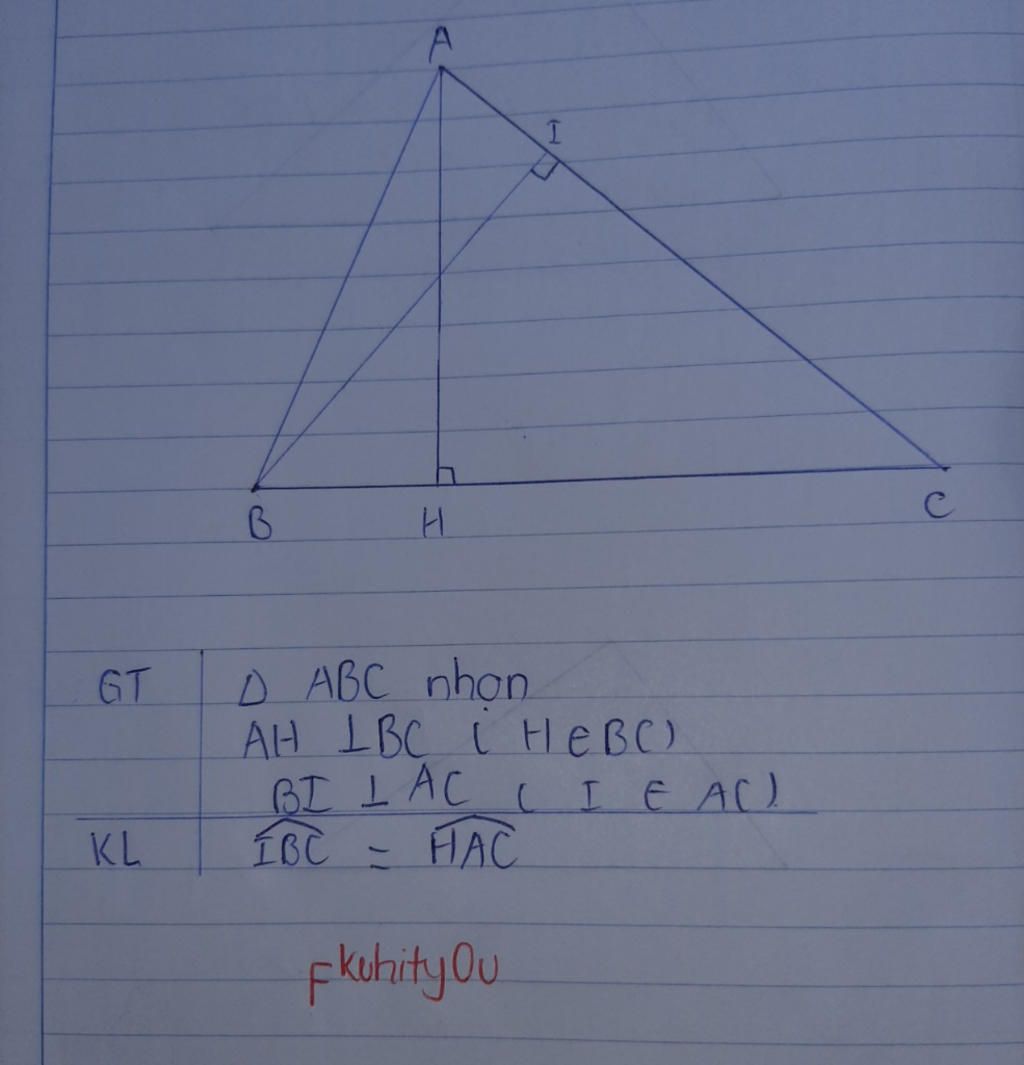 A
I
B H C
GT Δ ABC nhọn
AH ⊥BC ( H ∈ BC)
BI ⊥ AC ( I ∈ AC).
KL \widehat{IBC} = \widehat{HAC}
Fkuhity0u